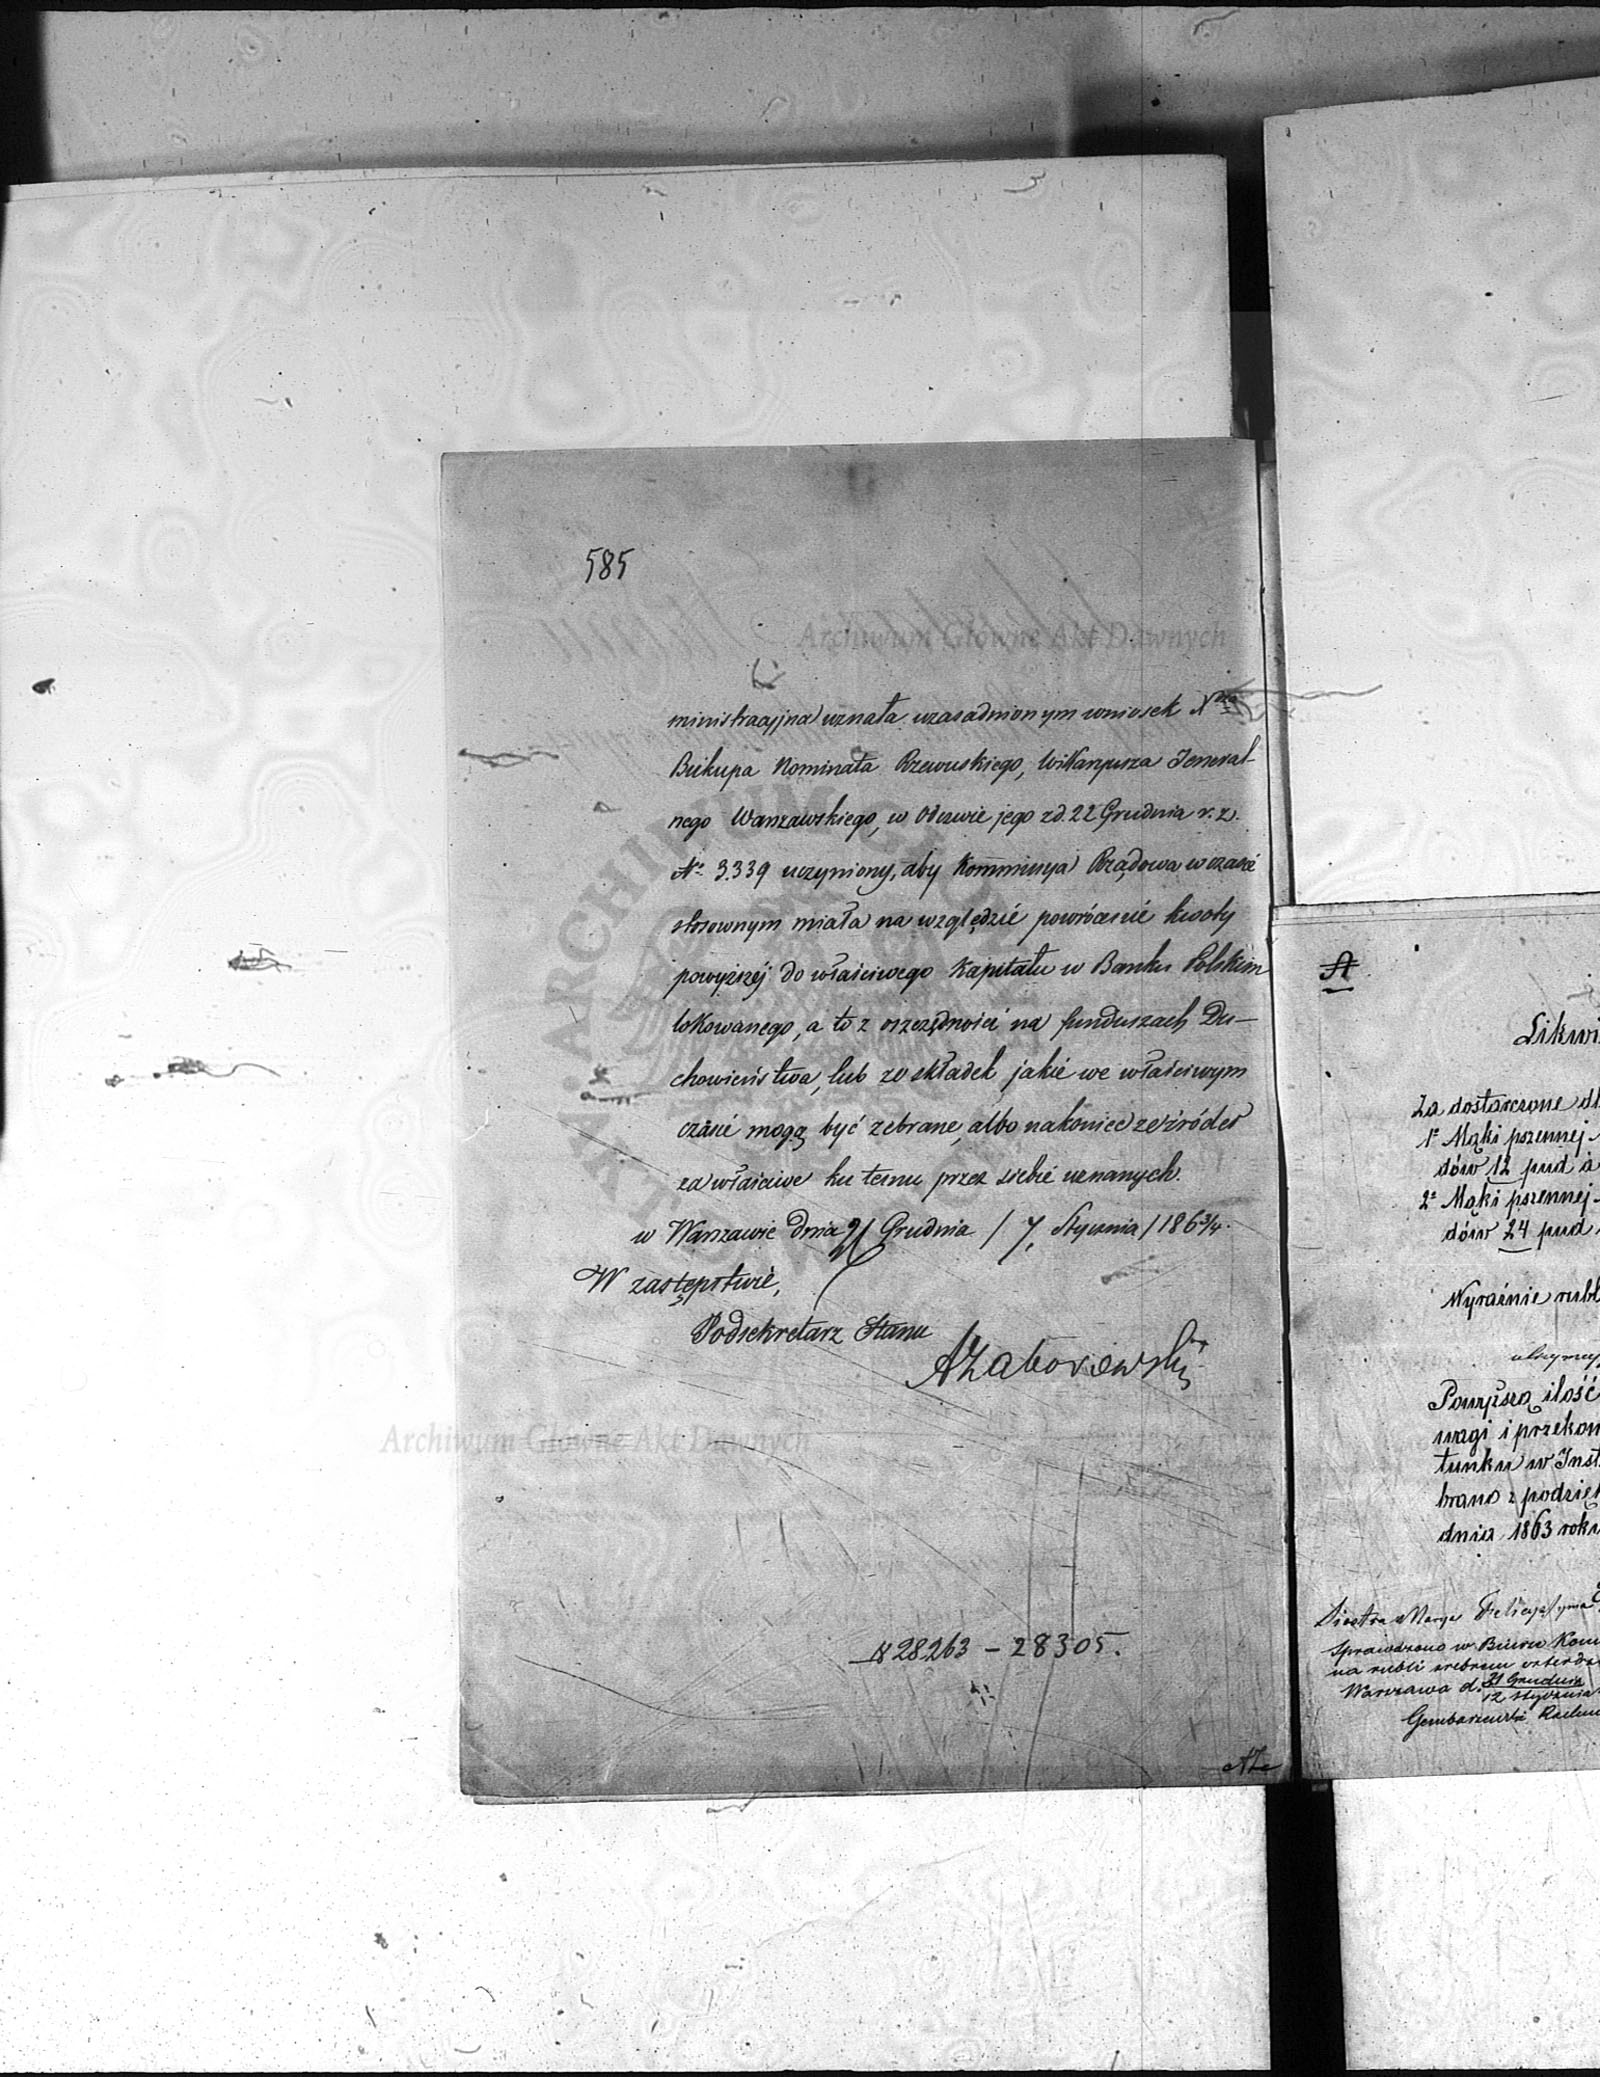 585
Archiwum Główne Akt Dawnych
ministracyjna uznała uzasadnionym wniosek Xdza
Biskupa Nominata Rzewuskiego, Wikaryusza Jeneral-
nego Warszawskiego, w Odezwie jego z d. 22 Grudnia r. z.
No 3.339 uczyniony, aby Kommissya Rządowa w czasie
stosownym miała na względzie powrócenie kwoty
powyższéj do właściwego Kapitału w Banku Polskim
lokowanego, a to z oszczędności na funduszach Du-
chowieństwa, lub ze składek jakie we właściwym
czasie mogą być zebrane, albo nakoniec ze źródeł
za właściwe ku temu przez siebie uznanych.
w Warszawie dnia Grudnia / 7. Stycznia / 1863/4.
W zastępstwie,
Podsekretarz Stanu
AZaborowski
Archiwum Główne Akt Dawnych
28263 - 28305.
A
Likwi
Za dostarczone dl
1o Mąki pszennej
dów 12 pud à
2o Mąki pszennej
dów 24 pud
Wyraźnie rubl
Powyższą ilość
wagi i przekon
tunku w Inst
brano z podzięk
dnia 1863 roku
Siostra Marya Felicya
Sprawdzono w Biurze Kom
na rubli srebrem
Warszawa d. 31 Grudnia
12 Stycznia
Gembarzewski Radca